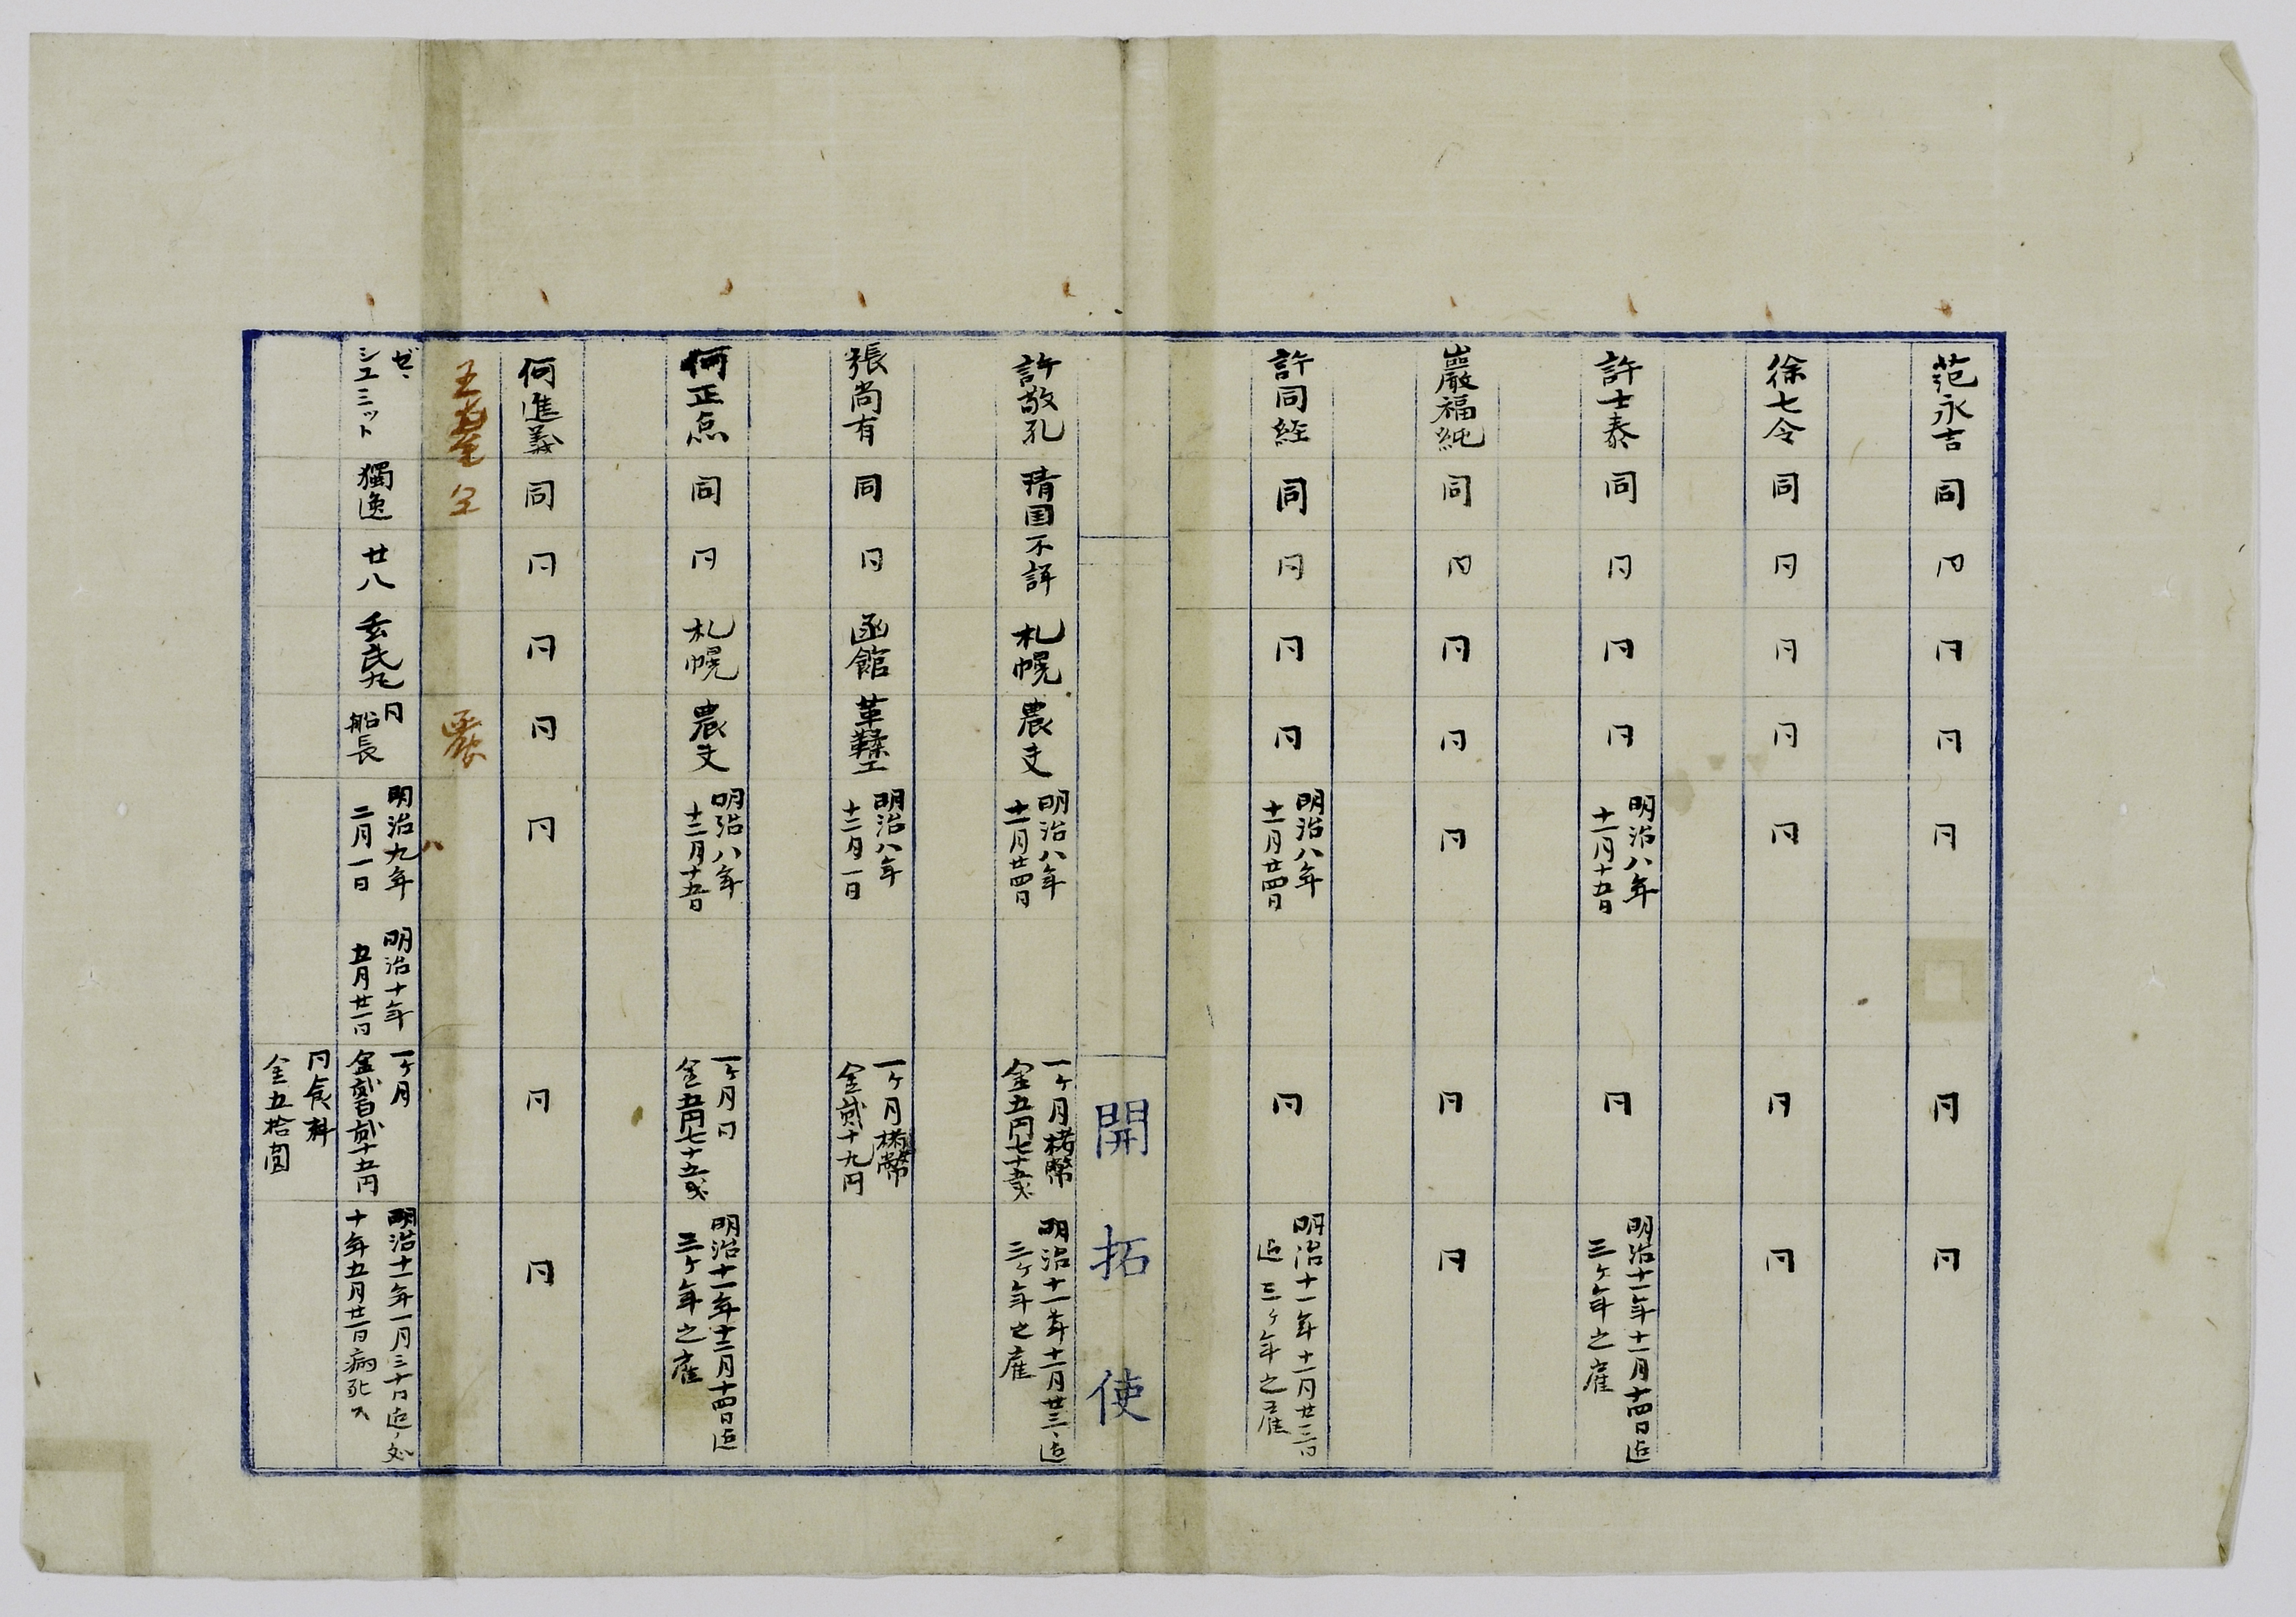 范永吉 同 同 同 同 同 同 同
徐七令 同 同 同 同 同 同 同
許士泰 同 同 同 同 明治八年
十一月十五日 同 明治十一年十一月十四日迄
三ヶ年之雇
巖福純 同 同 同 同 同 同 同
許同経 同 同 同 同 明治八年
十一月廿四日 同 明治十一年十一月廿三日
迄三ヶ年之雇
開拓使
許敬孔 清国 不詳 札幌 農夫 明治八年
十一月廿四日 一ヶ月楮幣
金五円七十五戔 明治十一年十一月廿三、迄
三ヶ年之雇
張尚有 同 同 函館 革鞣工 明治八年
十二月一日 一ヶ月楮幣
金貳十九円
何正 同 同 札幌 農夫 明治八年
十二月十五日 一ヶ月同
金五円七十五戔 明治十一年十二月十四日迄
三ヶ年之雇
何進義 同 同 同 同 同 同 同
ゼ、
シユミット 獨逸 廿八 玄武丸 同
船長 明治九年
二月一日 明治十年
五月廿一日 一ヶ月
金貳百貳十五円 明治十一年一月三十日迄ノ処
十年五月廿一日病死ス
同食料
金五拾圓